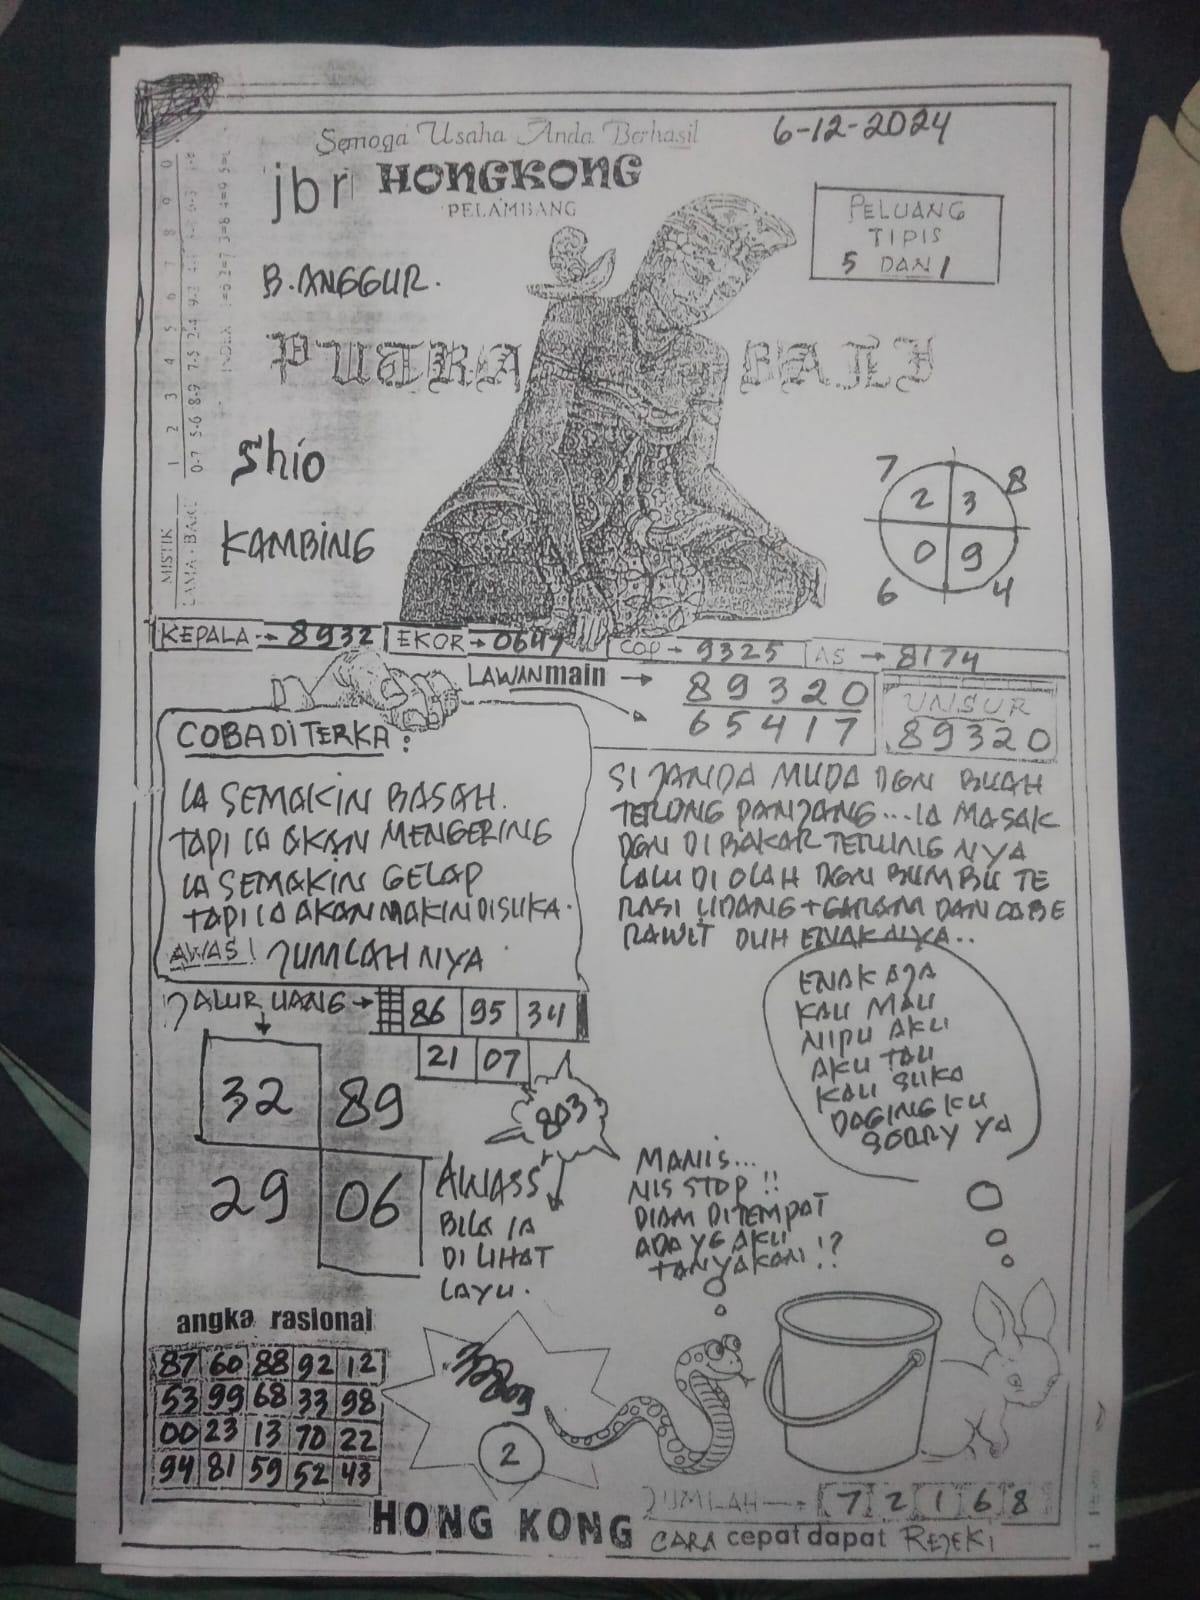 Semoga Usaha Anda Berhasil
6-12-2024
jbr HONGKONG
PELAMBANG
PELUANG
TIPIS
5 DAN 1
B. ANGGUR.
PUTRA BALI
Shio
KAMBING
7 8
2 3
0 9
6 4
MISTIK
1 2 3 4 5 6 7 8 9 0
LAMA - BARU
0-7 5-6 8-9 7-5 2-4
INDEX
KEPALA → 8932 EKOR → 0647 COP → 9325 AS → 8174
LAWANmain → 89320
65417
UNSUR
89320
COBA DITERKA :
IA SEMAKIN BASAH.
TAPI IA AKAN MENGERING
IA SEMAKIN GELAP
TAPI IA AKAN MAKIN DISUKA.
AWAS! JUMLAHNYA
SI JANDA MUDA DGN BUAH
TERONG PANJANG...IA MASAK
DGN DI BAKAR TERUNG NYA
LALU DI OLAH DGN BUMBU TE
RASI UDANG + GARAM DAN CABE
RAWIT DUH ENAKNYA..
JALUR UANG → 86 95 34
21 07
32 89
29 06
803
AWASS
BILA IA
DI LIHAT
LAYU.
ENAK AJA
KAU MAU
NIPU AKU
AKU TAU
KAU SUKA
DAGINGKU
SORRY YA
MANIS...
NIS STOP !!
DIAM DITEMPAT
ADA YG AKU
TANYAKAN !?
angka rasional
87 60 88 92 12
53 99 68 33 98
00 23 13 70 22
94 81 59 52 43
2
JUMLAH → 7 2 1 6 8
HONG KONG
CARA cepat dapat REJEKI